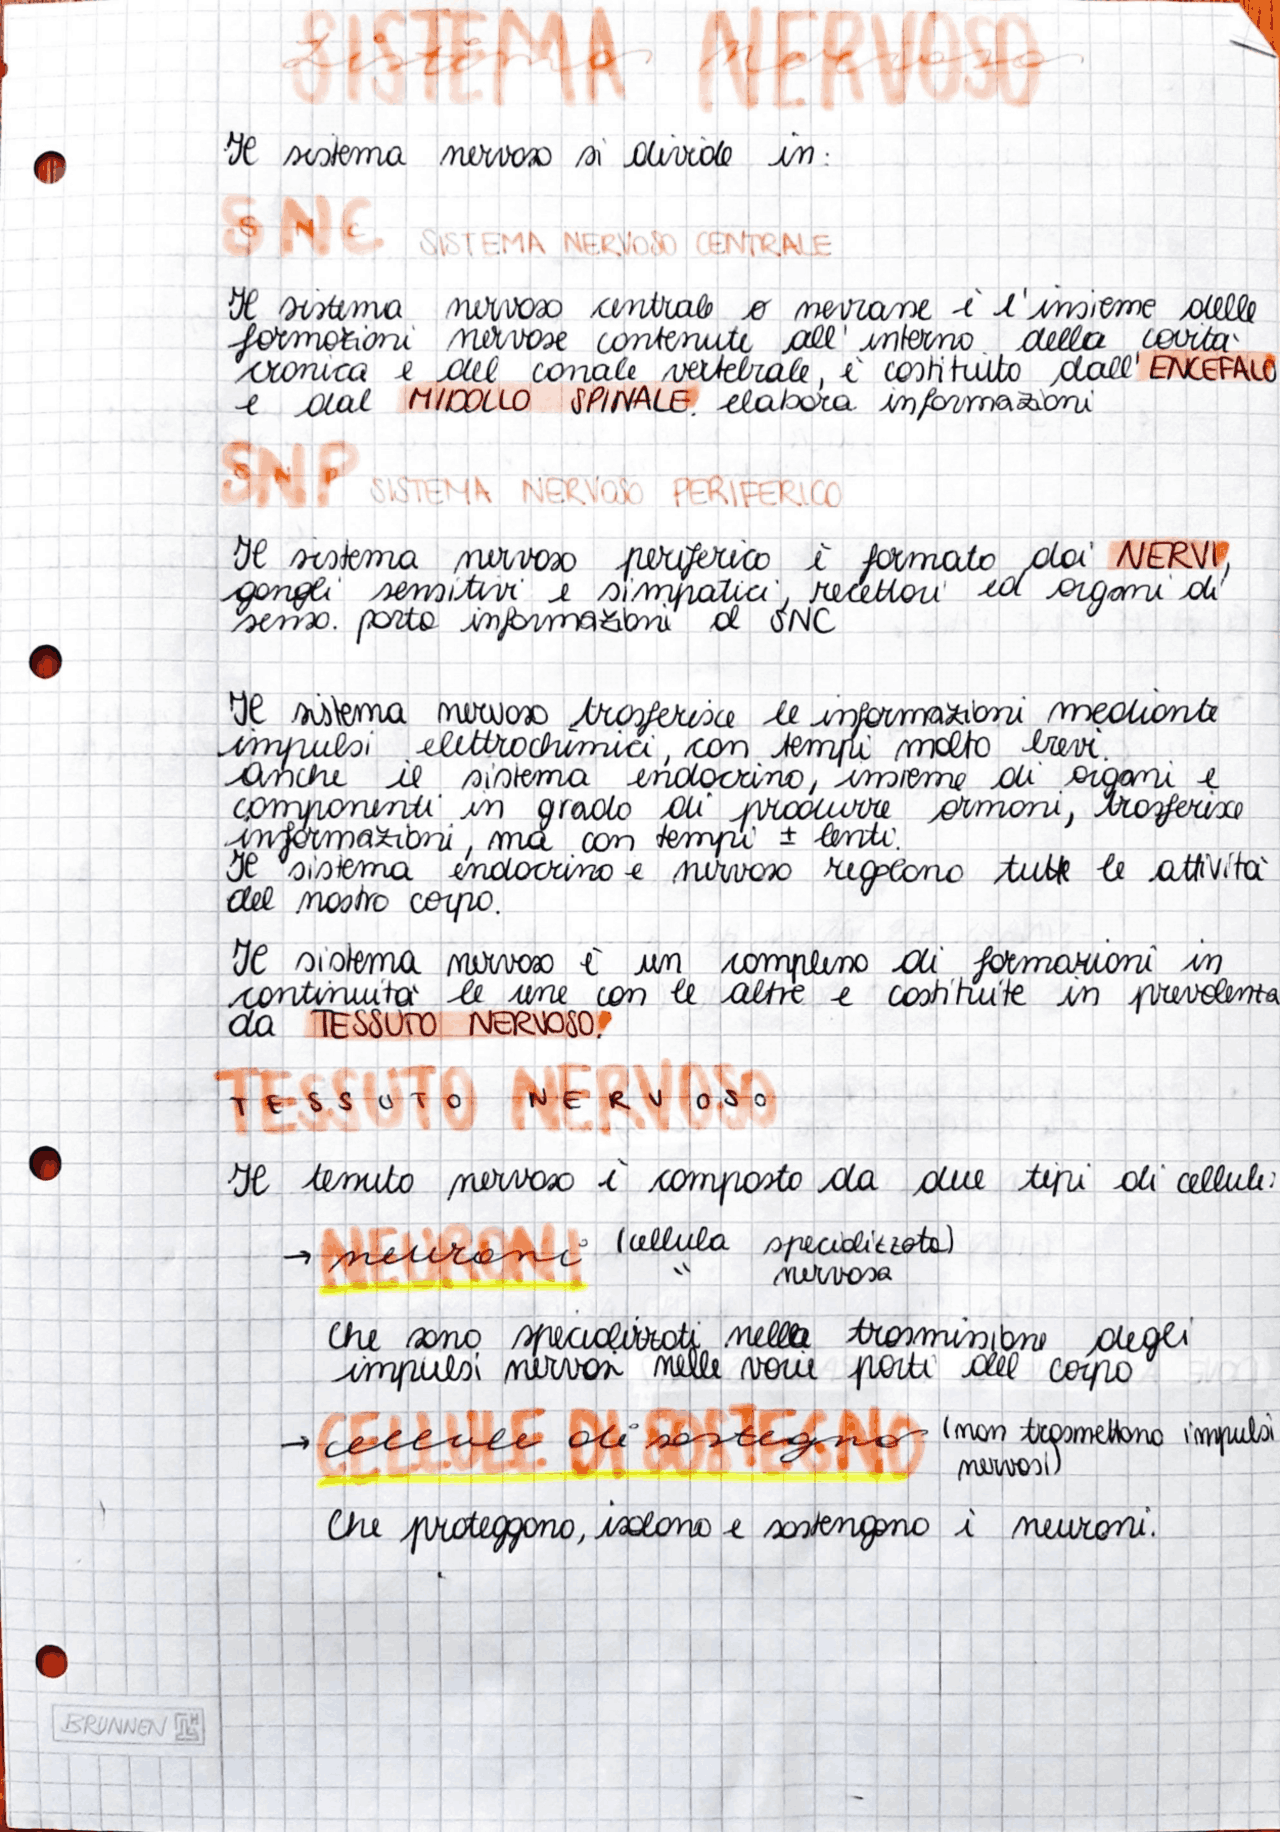 SISTEMA NERVOSO
Sistema Nervoso
Il sistema nervoso si divide in:
SNC SNC SISTEMA NERVOSO CENTRALE
Il sistema nervoso centrale o nevrasse è l'insieme delle
formazioni nervose contenute all'interno della cavità
cranica e del canale vertebrale, è costituito dall'ENCEFALO
e dal MIDOLLO SPINALE. elabora informazioni
SNP SNP SISTEMA NERVOSO PERIFERICO
Il sistema nervoso periferico è formato dai NERVI,
gangli sensitivi e simpatici, recettori ed organi di
senso. porta informazioni al SNC
Il sistema nervoso trasferisce le informazioni mediante
impulsi elettrochimici, con tempi molto brevi.
anche il sistema endocrino, insieme di organi e
componenti in grado di produrre ormoni, trasferisce
informazioni, ma con tempi ± lenti.
Il sistema endocrino e nervoso regolano tutte le attività
del nostro corpo.
Il sistema nervoso è un complesso di formazioni in
continuità le une con le altre e costituite in prevalenza
da TESSUTO NERVOSO.
TESSUTO NERVOSO
TESSUTO NERVOSO
Il tessuto nervoso è composto da due tipi di cellule:
→ NEURONI neuroni (cellula specializzata)
" nervosa
Che sono specializzati nella trasmissione degli
impulsi nervosi nelle varie parti del corpo
→ CELLULE DI SOSTEGNO cellule di sostegno (non trasmettono impulsi
nervosi)
Che proteggono, isolano e sostengono i neuroni.
BRUNNEN